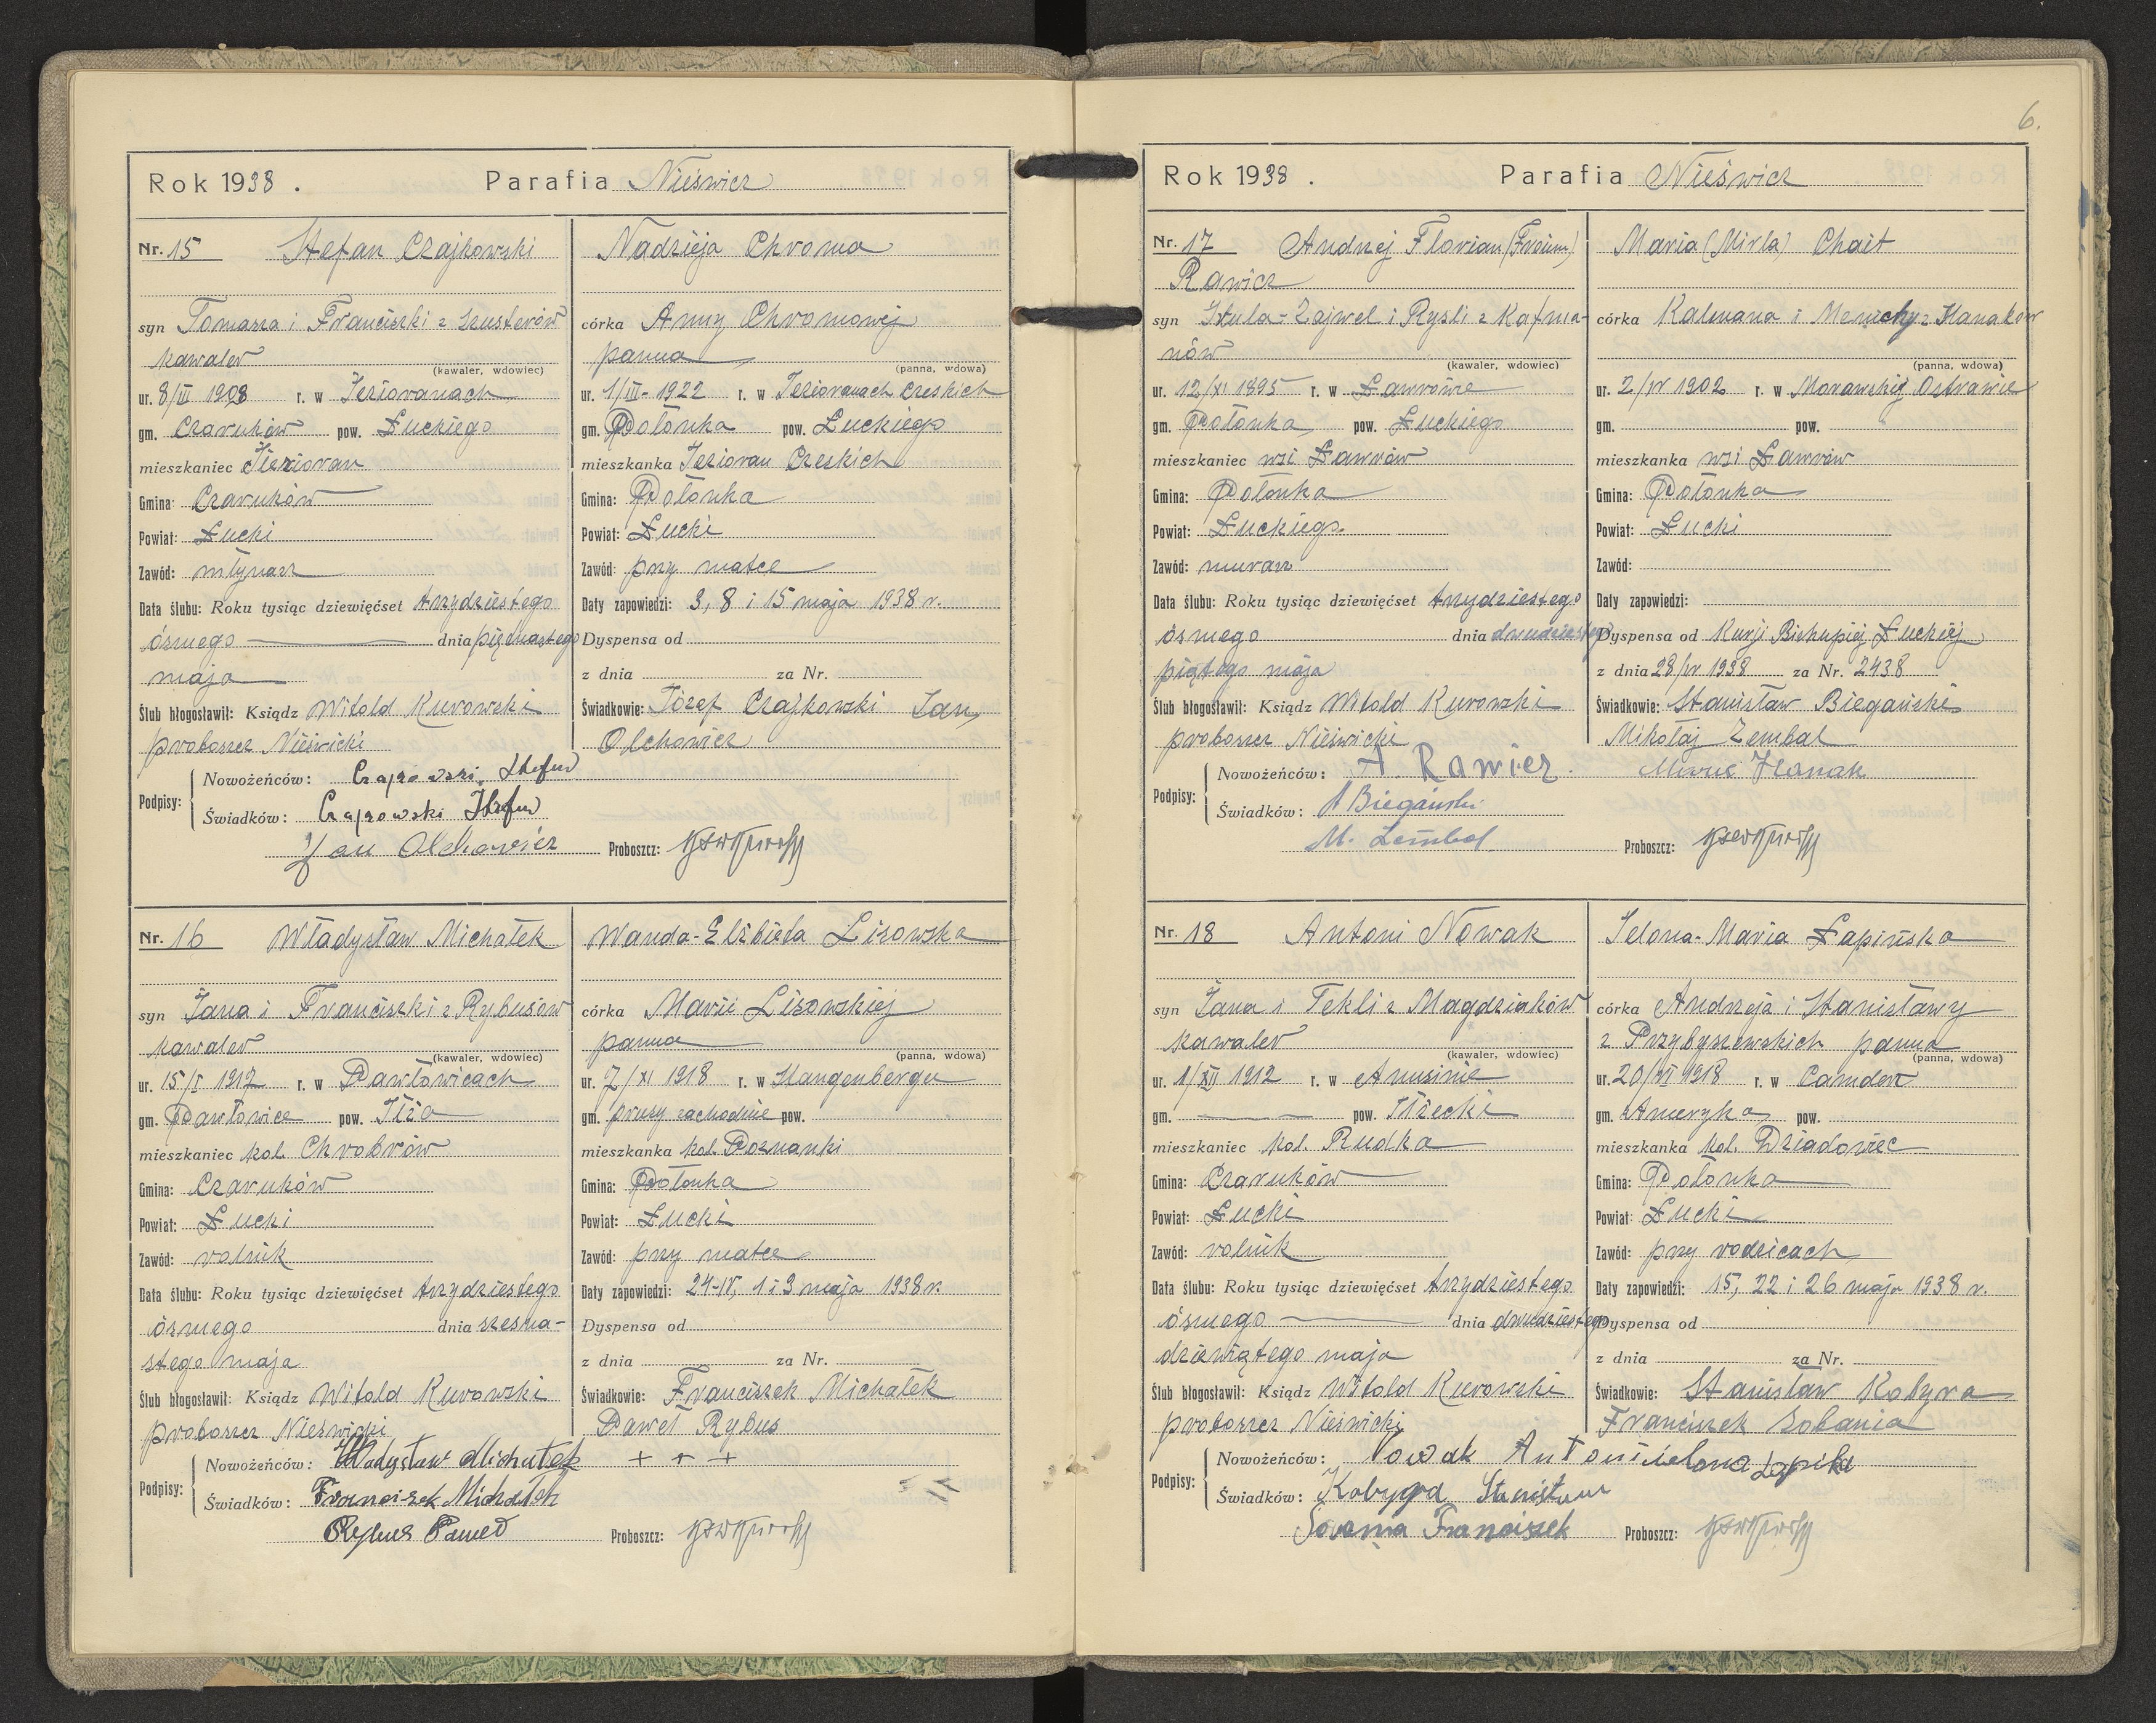 6.
Rok 1938. Parafia Nieświcz
Nr. 15 Stefan Czajkowski
syn Tomasza i Franciszki z Szusterów
kawaler (kawaler, wdowiec)
ur. 8/III 1908 r. w Jezioranach
gm. Czaruków pow. Łuckiego
mieszkaniec Jezioran
Gmina: Czaruków
Powiat: Łucki
Zawód: młynarz
Data ślubu: Roku tysiąc dziewięćset trzydziestego
ósmego dnia piętnastego
maja
Ślub błogosławił: Ksiądz Witold Kurowski
proboszcz Nieświcki
Nadzieja Chroma
córka Anny Chromowej
panna (panna, wdowa)
ur. 1/III-1922 r. w Jezioranach Czeskich
gm. Połonka pow. Łuckiego
mieszkanka Jezioran Czeskich
Gmina: Połonka
Powiat: Łucki
Zawód: przy matce
Daty zapowiedzi: 3, 8 i 15 maja 1938 r.
Dyspensa od
z dnia za Nr.
Świadkowie: Józef Czajkowski Jan
Olchowicz
Podpisy:
Nowożeńców: Czajkowski Stefan
Świadków: Czajkowski Józef
Jan Olchowicz Proboszcz:
Nr. 16 Władysław Michałek
syn Jana i Franciszki z Rybusów
kawaler (kawaler, wdowiec)
ur. 15/I 1912 r. w Pawłowicach
gm. Pawłowice pow. Iłża
mieszkaniec kol. Chrobrów
Gmina: Czaruków
Powiat: Łucki
Zawód: rolnik
Data ślubu: Roku tysiąc dziewięćset trzydziestego
ósmego dnia szesna-
stego maja
Ślub błogosławił: Ksiądz Witold Kurowski
proboszcz Nieświcki
Wanda-Elżbieta Lisowska
córka Marii Lisowskiej
panna (panna, wdowa)
ur. 7/XI 1918 r. w Hangenbergu
gm. prusy zachodnie pow.
mieszkanka kol. Poznanki
Gmina: Połonka
Powiat: Łucki
Zawód: przy matce
Daty zapowiedzi: 24-IV, 1 i 3 maja 1938 r.
Dyspensa od
z dnia za Nr.
Świadkowie: Franciszek Michałek
Paweł Rybus
Podpisy:
Nowożeńców: Władysław Michałek + + +
Świadków: Franciszek Michałek
Rybus Paweł Proboszcz:
Rok 1938. Parafia Nieświcz
Nr. 17 Andrzej Florian (Froim)
Rawicz
syn Szula-Zajwel i Rysli z Kafma-
nów (kawaler, wdowiec)
ur. 12/XI 1895 r. w Ławrowie
gm. Połonka pow. Łuckiego
mieszkaniec wsi Ławrów
Gmina: Połonka
Powiat: Łuckiego
Zawód: murarz
Data ślubu: Roku tysiąc dziewięćset trzydziestego
ósmego dnia dwudziestego
piątego maja
Ślub błogosławił: Ksiądz Witold Kurowski
proboszcz Nieświcki
Maria (Mirla) Chait
córka Kalmana i Menichy z Hanaków
(panna, wdowa)
ur. 2/IV 1902 r. w Morawskiej Ostrawie
gm. pow.
mieszkanka wsi Ławrów
Gmina: Połonka
Powiat: Łucki
Zawód:
Daty zapowiedzi:
Dyspensa od Kurji Biskupiej Łuckiej
z dnia 28/IV 1938 za Nr. 2438
Świadkowie: Stanisław Biegański
Mikołaj Zembal
Podpisy:
Nowożeńców: A Rawicz. Hanak
Świadków: Biegański
M. Zembal Proboszcz:
Nr. 18 Antoni Nowak
syn Jana i Tekli z Magdziaków
kawaler (kawaler, wdowiec)
ur. 1/XII 1912 r. w Anusinie
gm. pow. Iłżecki
mieszkaniec kol. Rudka
Gmina: Czaruków
Powiat: Łucki
Zawód: rolnik
Data ślubu: Roku tysiąc dziewięćset trzydziestego
ósmego dnia dwudziestego
dziewiątego maja
Ślub błogosławił: Ksiądz Witold Kurowski
proboszcz Nieświcki
Ielona-Maria Łapińska
córka Andrzeja i Stanisławy
z Przybyszewskich panna (panna, wdowa)
ur. 20/VI 1918 r. w Camden
gm. Ameryka pow.
mieszkanka kol. Dziadowiec
Gmina: Połonka
Powiat: Łucki
Zawód: przy rodzicach
Daty zapowiedzi: 15, 22 i 26 maja 1938 r.
Dyspensa od
z dnia za Nr.
Świadkowie: Stanisław Kobyra
Franciszek Sobania
Podpisy:
Nowożeńców: Nowak Antoni Ielona
Świadków: Stanisław
Franciszek Proboszcz: